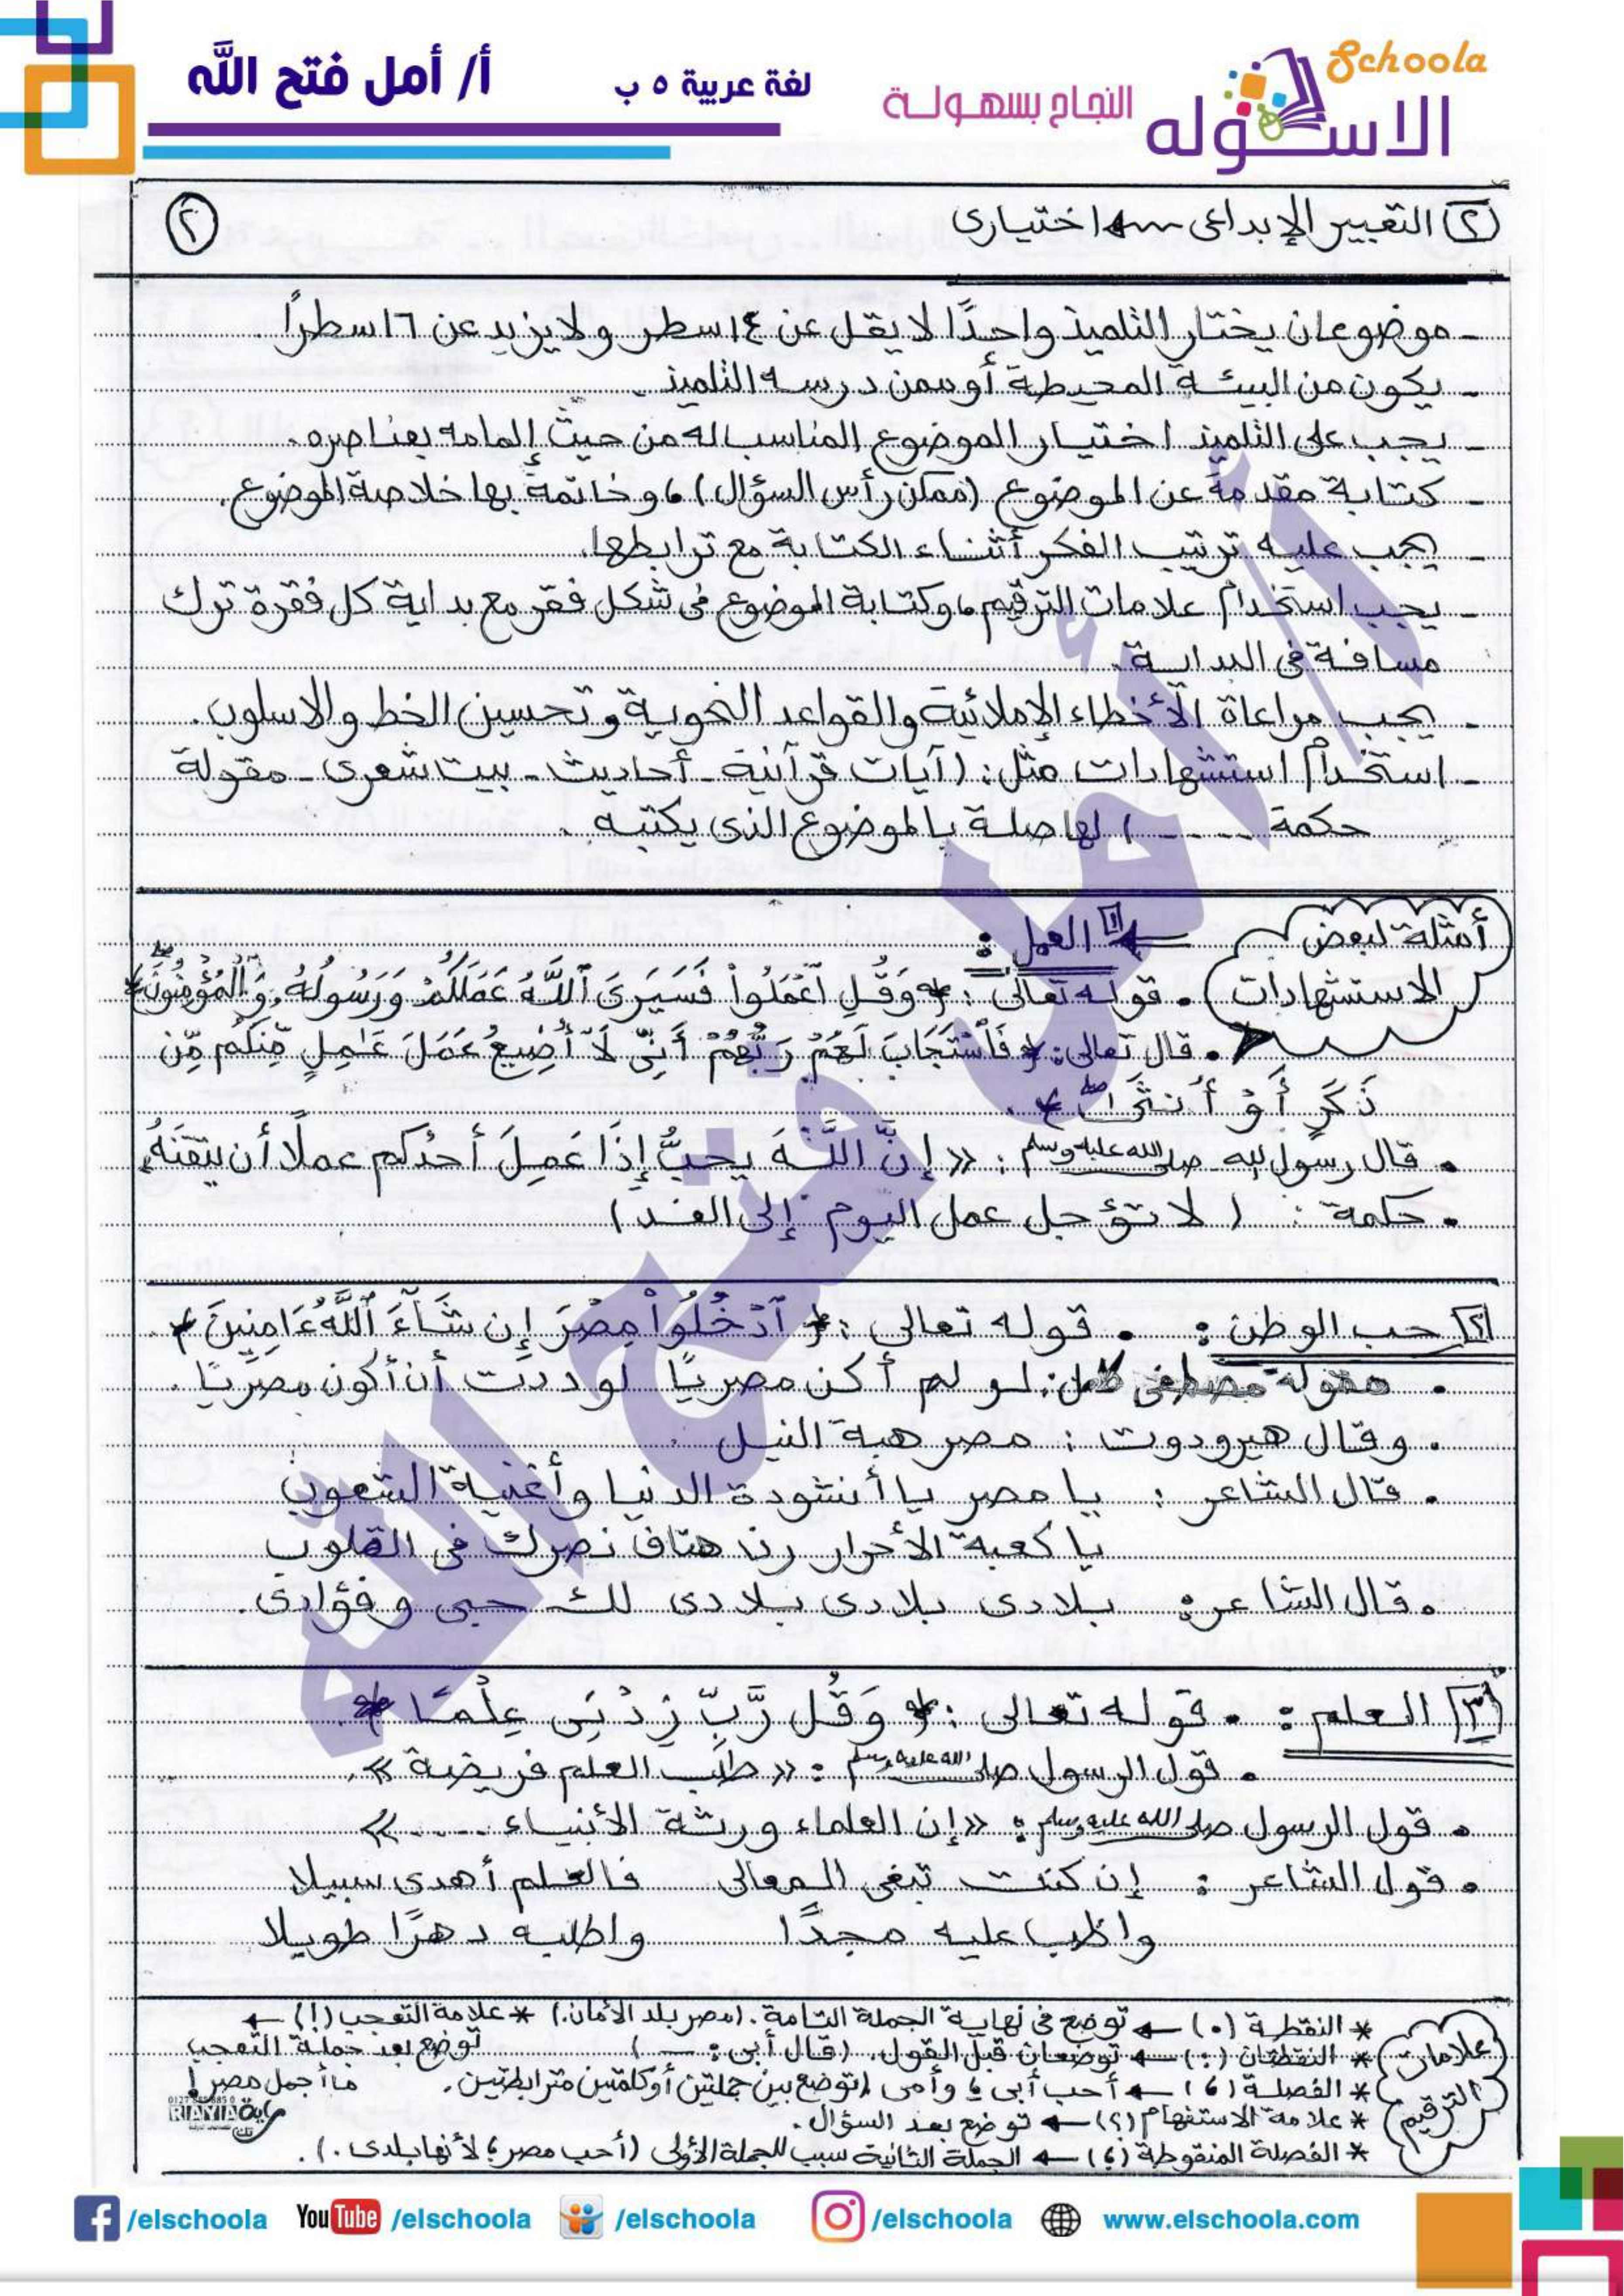 Schoola
الاسكوله
النجاح بسهولة
لغة عربية ٥ ب
أ/ أمل فتح الله
٢ التعبير الإبداعى ← اختيارى
٢
- موضوعان يختار التلميذ واحدًا لا يقل عن ١٤ سطر ولا يزيد عن ١٦ سطرًا.
- يكون من البيئة المحيطة أو ممن درسه التلميذ.
- يجب على التلميذ اختيار الموضوع المناسب له من حيث إلمامه بعناصره.
- كتابة مقدمة عن الموضوع (ممكن رأس السؤال)، وخاتمة بها خلاصة الموضوع.
- يجب عليه ترتيب الفكر أثناء الكتابة مع ترابطها.
- يجب استخدام علامات الترقيم، وكتابة الموضوع فى شكل فقر مع بداية كل فقرة ترك
مسافة فى البداية.
- يجب مراعاة الأخطاء الإملائية والقواعد النحوية وتحسين الخط والاسلوب.
- استخدام استشهادات مثل: (آيات قرآنية - أحاديث - بيت شعرى - مقولة
حكمة ----) لها صلة بالموضوع الذى يكتبه.
أمثلة لبعض
الاستشهادات
١ العمل:
• قوله تعالى: ﴿وَقُلِ ٱعْمَلُوا۟ فَسَيَرَى ٱللَّهُ عَمَلَكُمْ وَرَسُولُهُۥ وَٱلْمُؤْمِنُونَ﴾
• قال تعالى: ﴿فَٱسْتَجَابَ لَهُمْ رَبُّهُمْ أَنِّى لَآ أُضِيعُ عَمَلَ عَٰمِلٍ مِّنكُم مِّن
ذَكَرٍ أَوْ أُنثَىٰ﴾.
• قال رسول الله صلى الله عليه وسلم: «إِنَّ اللَّهَ يحبُّ إِذَا عَمِلَ أحدُكم عملًا أن يتقنَهُ»
• حكمة: (لا تؤجل عمل اليوم إلى الغد)
٢ حب الوطن: • قوله تعالى: ﴿ٱدْخُلُوا۟ مِصْرَ إِن شَآءَ ٱللَّهُ ءَامِنِينَ﴾.
• مقولة مصطفى كامل: لو لم أكن مصريًا لوددت أن أكون مصريًا.
• وقال هيرودوت: مصر هبة النيل.
• قال الشاعر: يا مصر يا أنشودة الدنيا وأغنية الشعوب
يا كعبة الأحرار رنا هتاف نصرك فى القلوب
• قال الشاعر: بلادى بلادى بلادى لك حبى وفؤادى.
٣ العلم: • قوله تعالى: ﴿وَقُل رَّبِّ زِدْنِى عِلْمًا﴾.
• قول الرسول صلى الله عليه وسلم: «طلب العلم فريضة».
• قول الرسول صلى الله عليه وسلم: «إن العلماء ورثة الأنبياء ----»
• قول الشاعر: إن كنت تبغى المعالى فالعلم أهدى سبيلا
واظب عليه مجدًا واطلبه دهرًا طويلا
علامات
الترقيم
* النقطة (.) ← توضع فى نهاية الجملة التامة. (مصر بلد الأمان.) * علامة التعجب (!) ←
* النقطتان (:) ← توضعان قبل القول. (قال أبى: —) توضع بعد جملة التعجب
* الفصلة (،) ← أحب أبى، وأمى (توضع بين جملتين أو كلمتين مترابطتين. ما أجمل مصر!
* علامة الاستفهام (؟) ← توضع بعد السؤال.
* الفصلة المنقوطة (؛) ← الجملة الثانية سبب للجملة الأولى (أحب مصر؛ لأنها بلدى.).
أ/ أمل فتح الله
RAYIA
/elschoola
YouTube /elschoola
/elschoola
/elschoola
www.elschoola.com